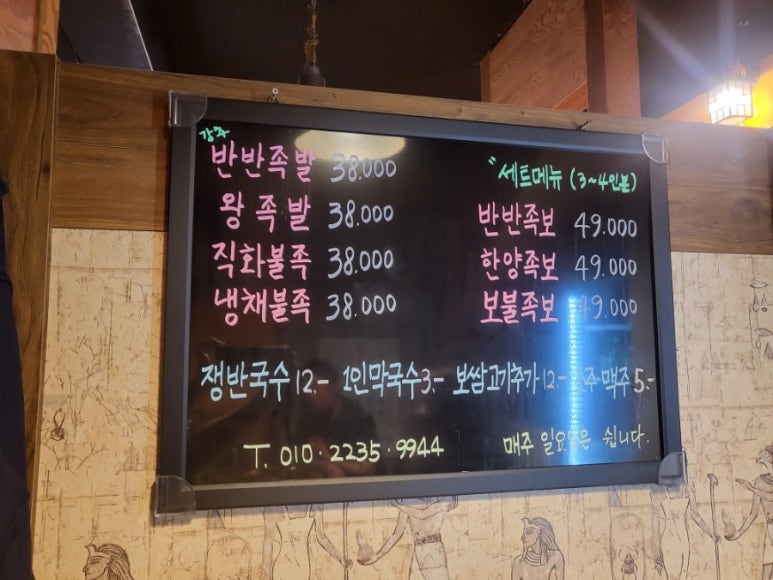 강추
반반족발 38.000
왕족발 38.000
직화불족 38.000
냉채불족 38.000
〃세트메뉴 (3~4인분)
반반족보 49.000
한양족보 49.000
보불족보 49.000
쟁반국수 12.- 1인막국수 3.- 보쌈고기추가 12.- 주·맥주 5.-
T. 010·2235·9944 매주 일요일은 쉽니다.